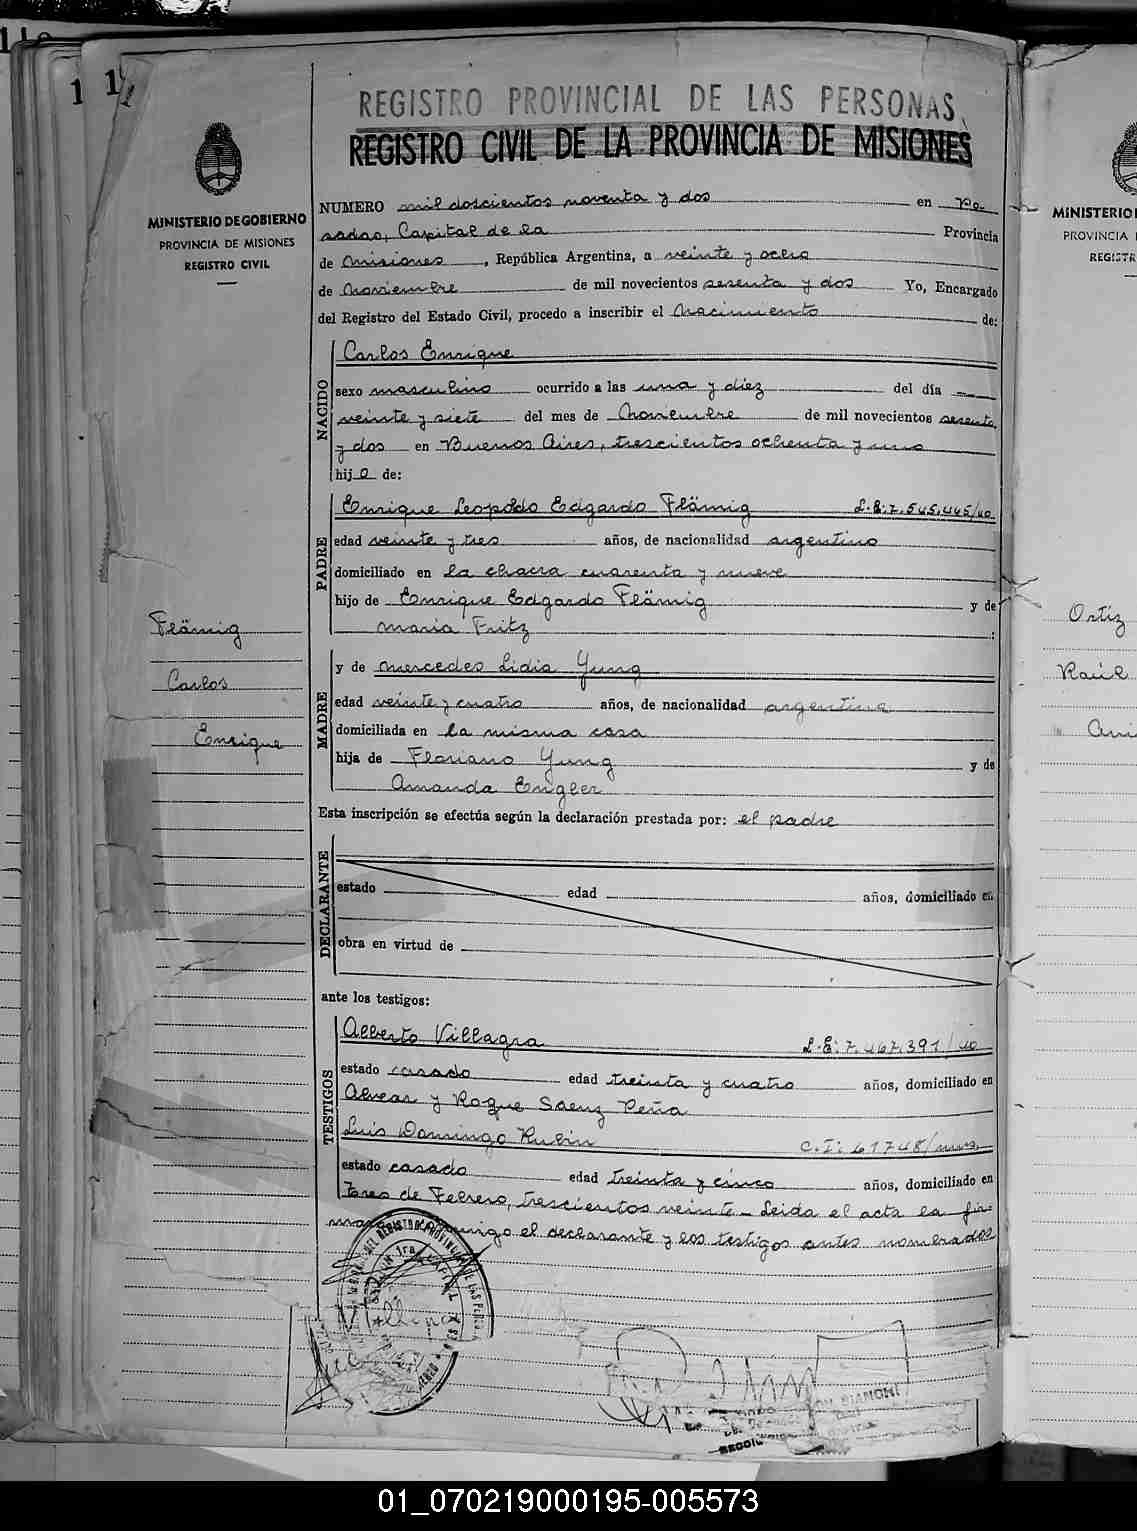 REGISTRO PROVINCIAL DE LAS PERSONAS
REGISTRO CIVIL DE LA PROVINCIA DE MISIONES
MINISTERIO DE GOBIERNO
PROVINCIA DE MISIONES
REGISTRO CIVIL
NUMERO mil doscientos noventa y dos en Po-
sadas, Capital de la Provincia
de Misiones, República Argentina, a veinte y ocho
de Noviembre de mil novecientos sesenta y dos Yo, Encargado
del Registro del Estado Civil, procedo a inscribir el Nacimiento de:
NACIDO
Carlos Enrique
sexo masculino ocurrido a las una y diez del día
veinte y siete del mes de Noviembre de mil novecientos sesenta
y dos en Buenos Aires, trescientos ochenta y uno
hijo de:
PADRE
Enrique Leopoldo Edgardo Flämig L.E:7.545.445/
edad veinte y tres años, de nacionalidad argentino
domiciliado en la chacra cuarenta y nueve
hijo de Enrique Edgardo Flämig y de
Maria Fritz :
Flämig
Carlos
Enrique
MADRE
y de Mercedes Lidia Yung
edad veinte y cuatro años, de nacionalidad argentina
domiciliada en la misma casa
hija de Floriano Yung y de
Amanda Engler
Esta inscripción se efectúa según la declaración prestada por: el padre
DECLARANTE
estado edad años, domiciliado en
obra en virtud de
ante los testigos:
TESTIGOS
Alberto Villagra L.E:7.467.391/
estado casado edad treinta y cuatro años, domiciliado en
Alvear y Roque Saenz Peña
Luis Domingo Kubin C.I: 61748/
estado casado edad treinta y cinco años, domiciliado en
Tres de Febrero, trescientos veinte - Leida el acta la fir-
man conmigo el declarante y los testigos antes nombrados
MINISTERIO
PROVINCIA
REGISTR
Ortiz
Raúl
01_070219000195-005573